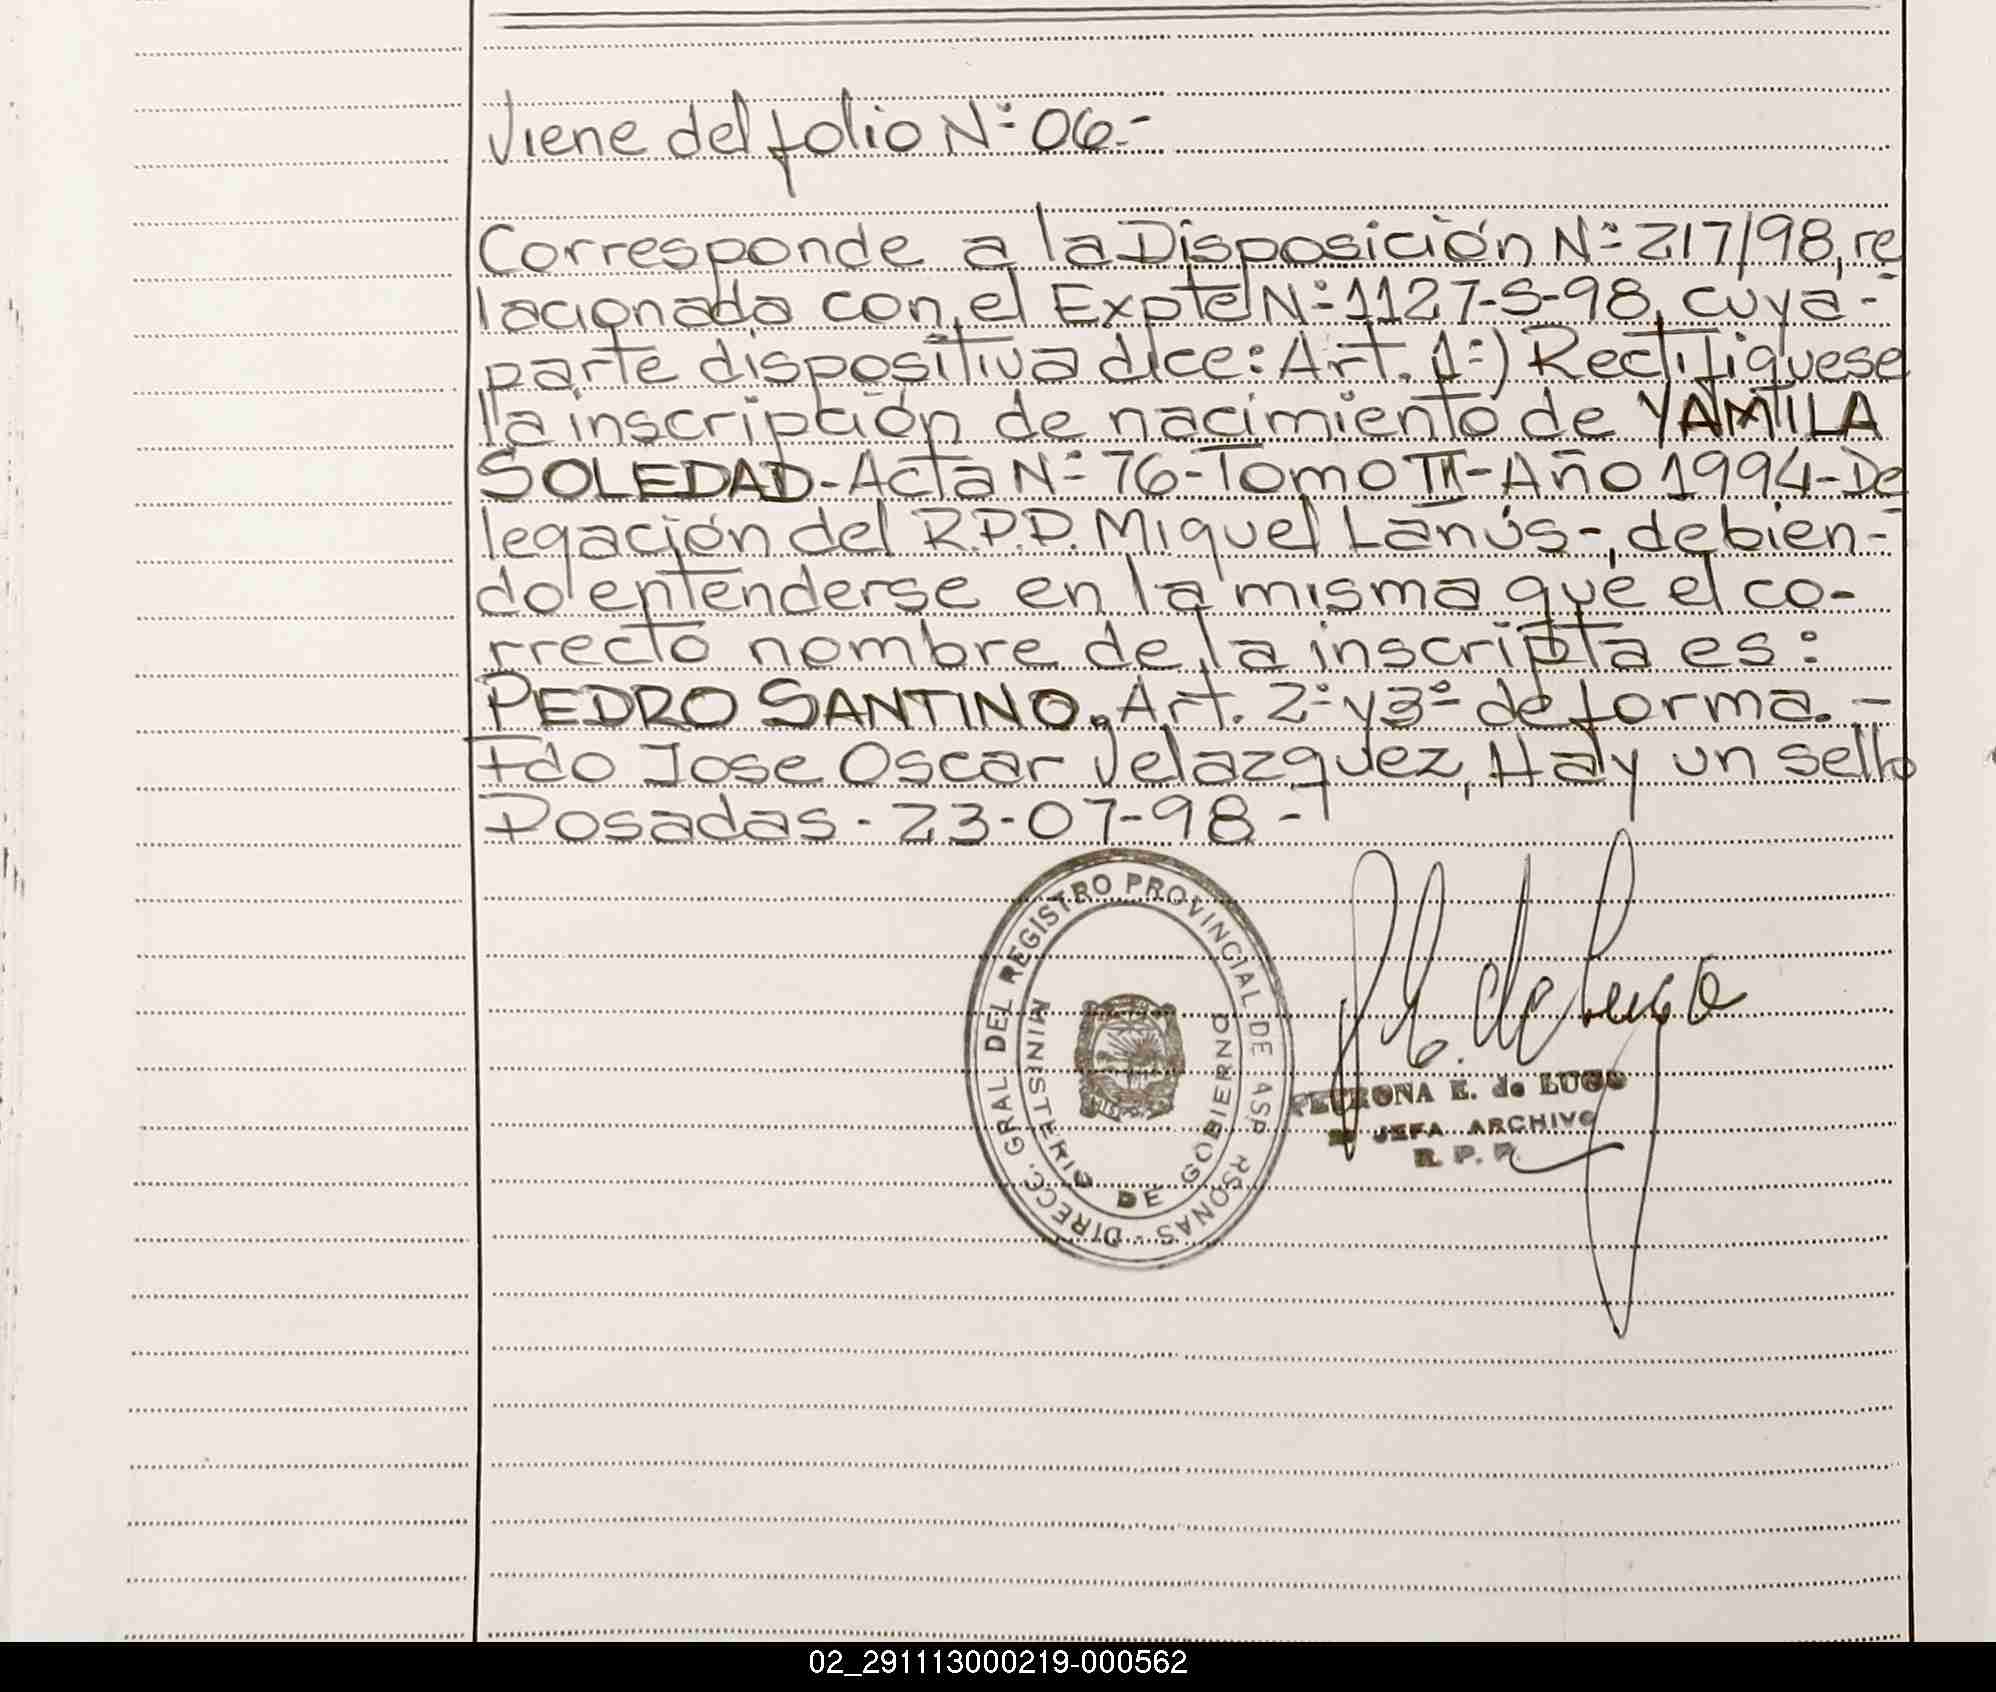 Viene del folio Nº 06.-
Corresponde a la Disposición Nº 217/98, re
lacionada con el Expte Nº 1127-S-98, cuya-
parte dispositiva dice: Art. 1º) Rectifiquese
la inscripción de nacimiento de YAMILA
SOLEDAD-Acta Nº 76-Tomo III-Año 1994-De
legación del R.P.P. Miguel Lanús-, debien-
do entenderse en la misma que el co-
rrecto nombre de la inscripta es:
PEDRO SANTINO. Art. 2º y 3º de forma.-
Fdo Jose Oscar Velazquez, Hay un sello
Posadas-23-07-98-
DIRECC. GRAL. DEL REGISTRO PROVINCIAL DE
RSONAS
MINISTERIO DE GOBIERNO
P E. de Lugo
PETRONA E. de LUGO
JEFA ARCHIVO
R. P. P.
02_291113000219-000562